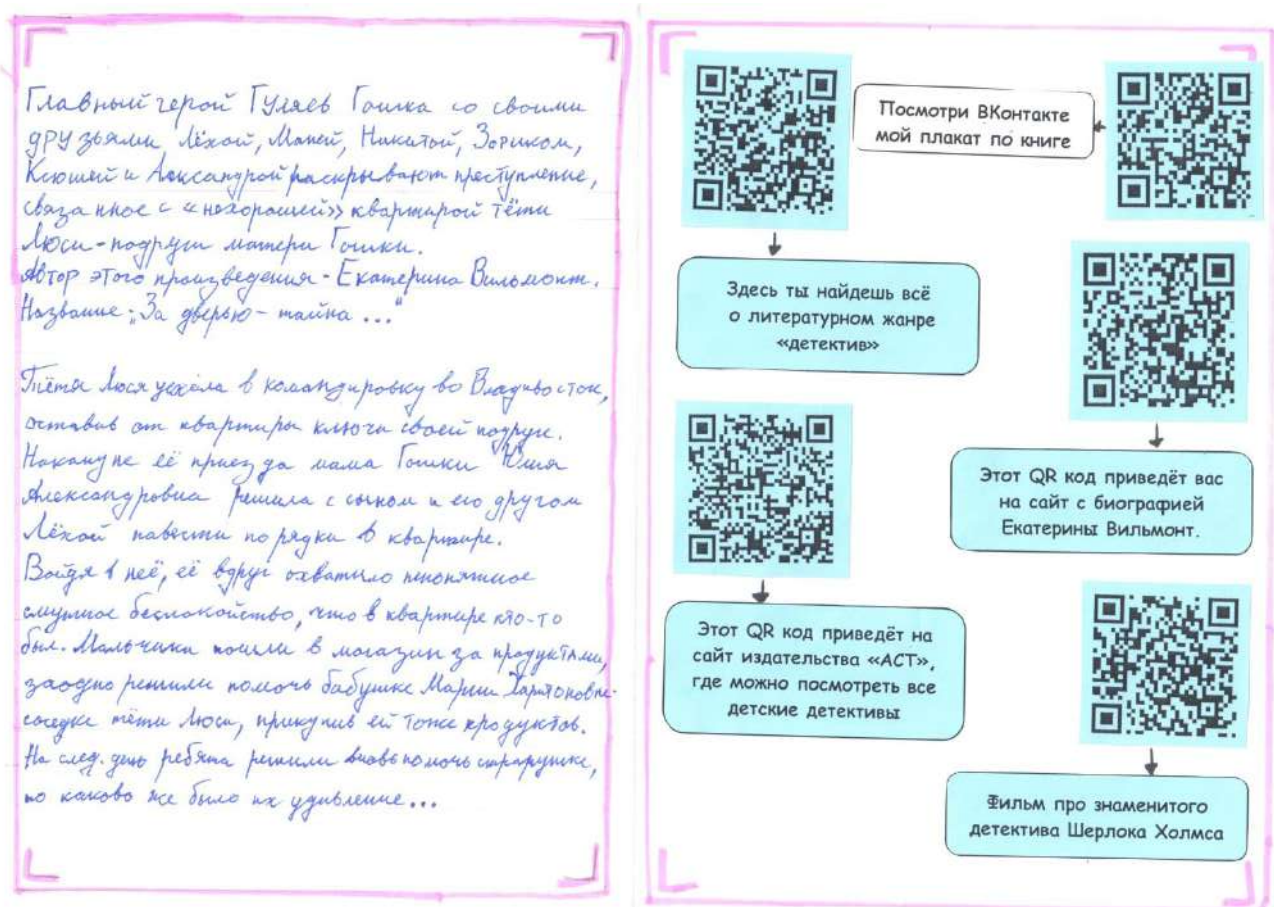 Главный герой Гуляев Гошка со своими
друзьями Лёхой, Маней, Никитой, Зориком,
Ксюшей и Александрой раскрывают преступление,
связанное с «нехорошей» квартирой тёти
Люси - подруги матери Гошки.
Автор этого произведения - Екатерина Вильмонт.
Название: „За дверью - тайна..."
Тётя Люся уехала в командировку во Владивосток,
оставив от квартиры ключи своей подруге.
Накануне её приезда мама Гошки Юлия
Александровна решила с сыном и его другом
Лёхой навести порядки в квартире.
Войдя в неё, её вдруг охватило непонятное
смутное беспокойство, что в квартире кто-то
был. Мальчики пошли в магазин за продуктами,
заодно решили помочь бабушке Марии Харитоновне-
соседке тёти Люси, прикупив ей тоже продуктов.
На след. день ребята решили вновь помочь старушке,
но каково же было их удивление...
Посмотри ВКонтакте
мой плакат по книге
Здесь ты найдешь всё
о литературном жанре
«детектив»
Этот QR код приведёт вас
на сайт с биографией
Екатерины Вильмонт.
Этот QR код приведёт на
сайт издательства «АСТ»,
где можно посмотреть все
детские детективы
Фильм про знаменитого
детектива Шерлока Холмса